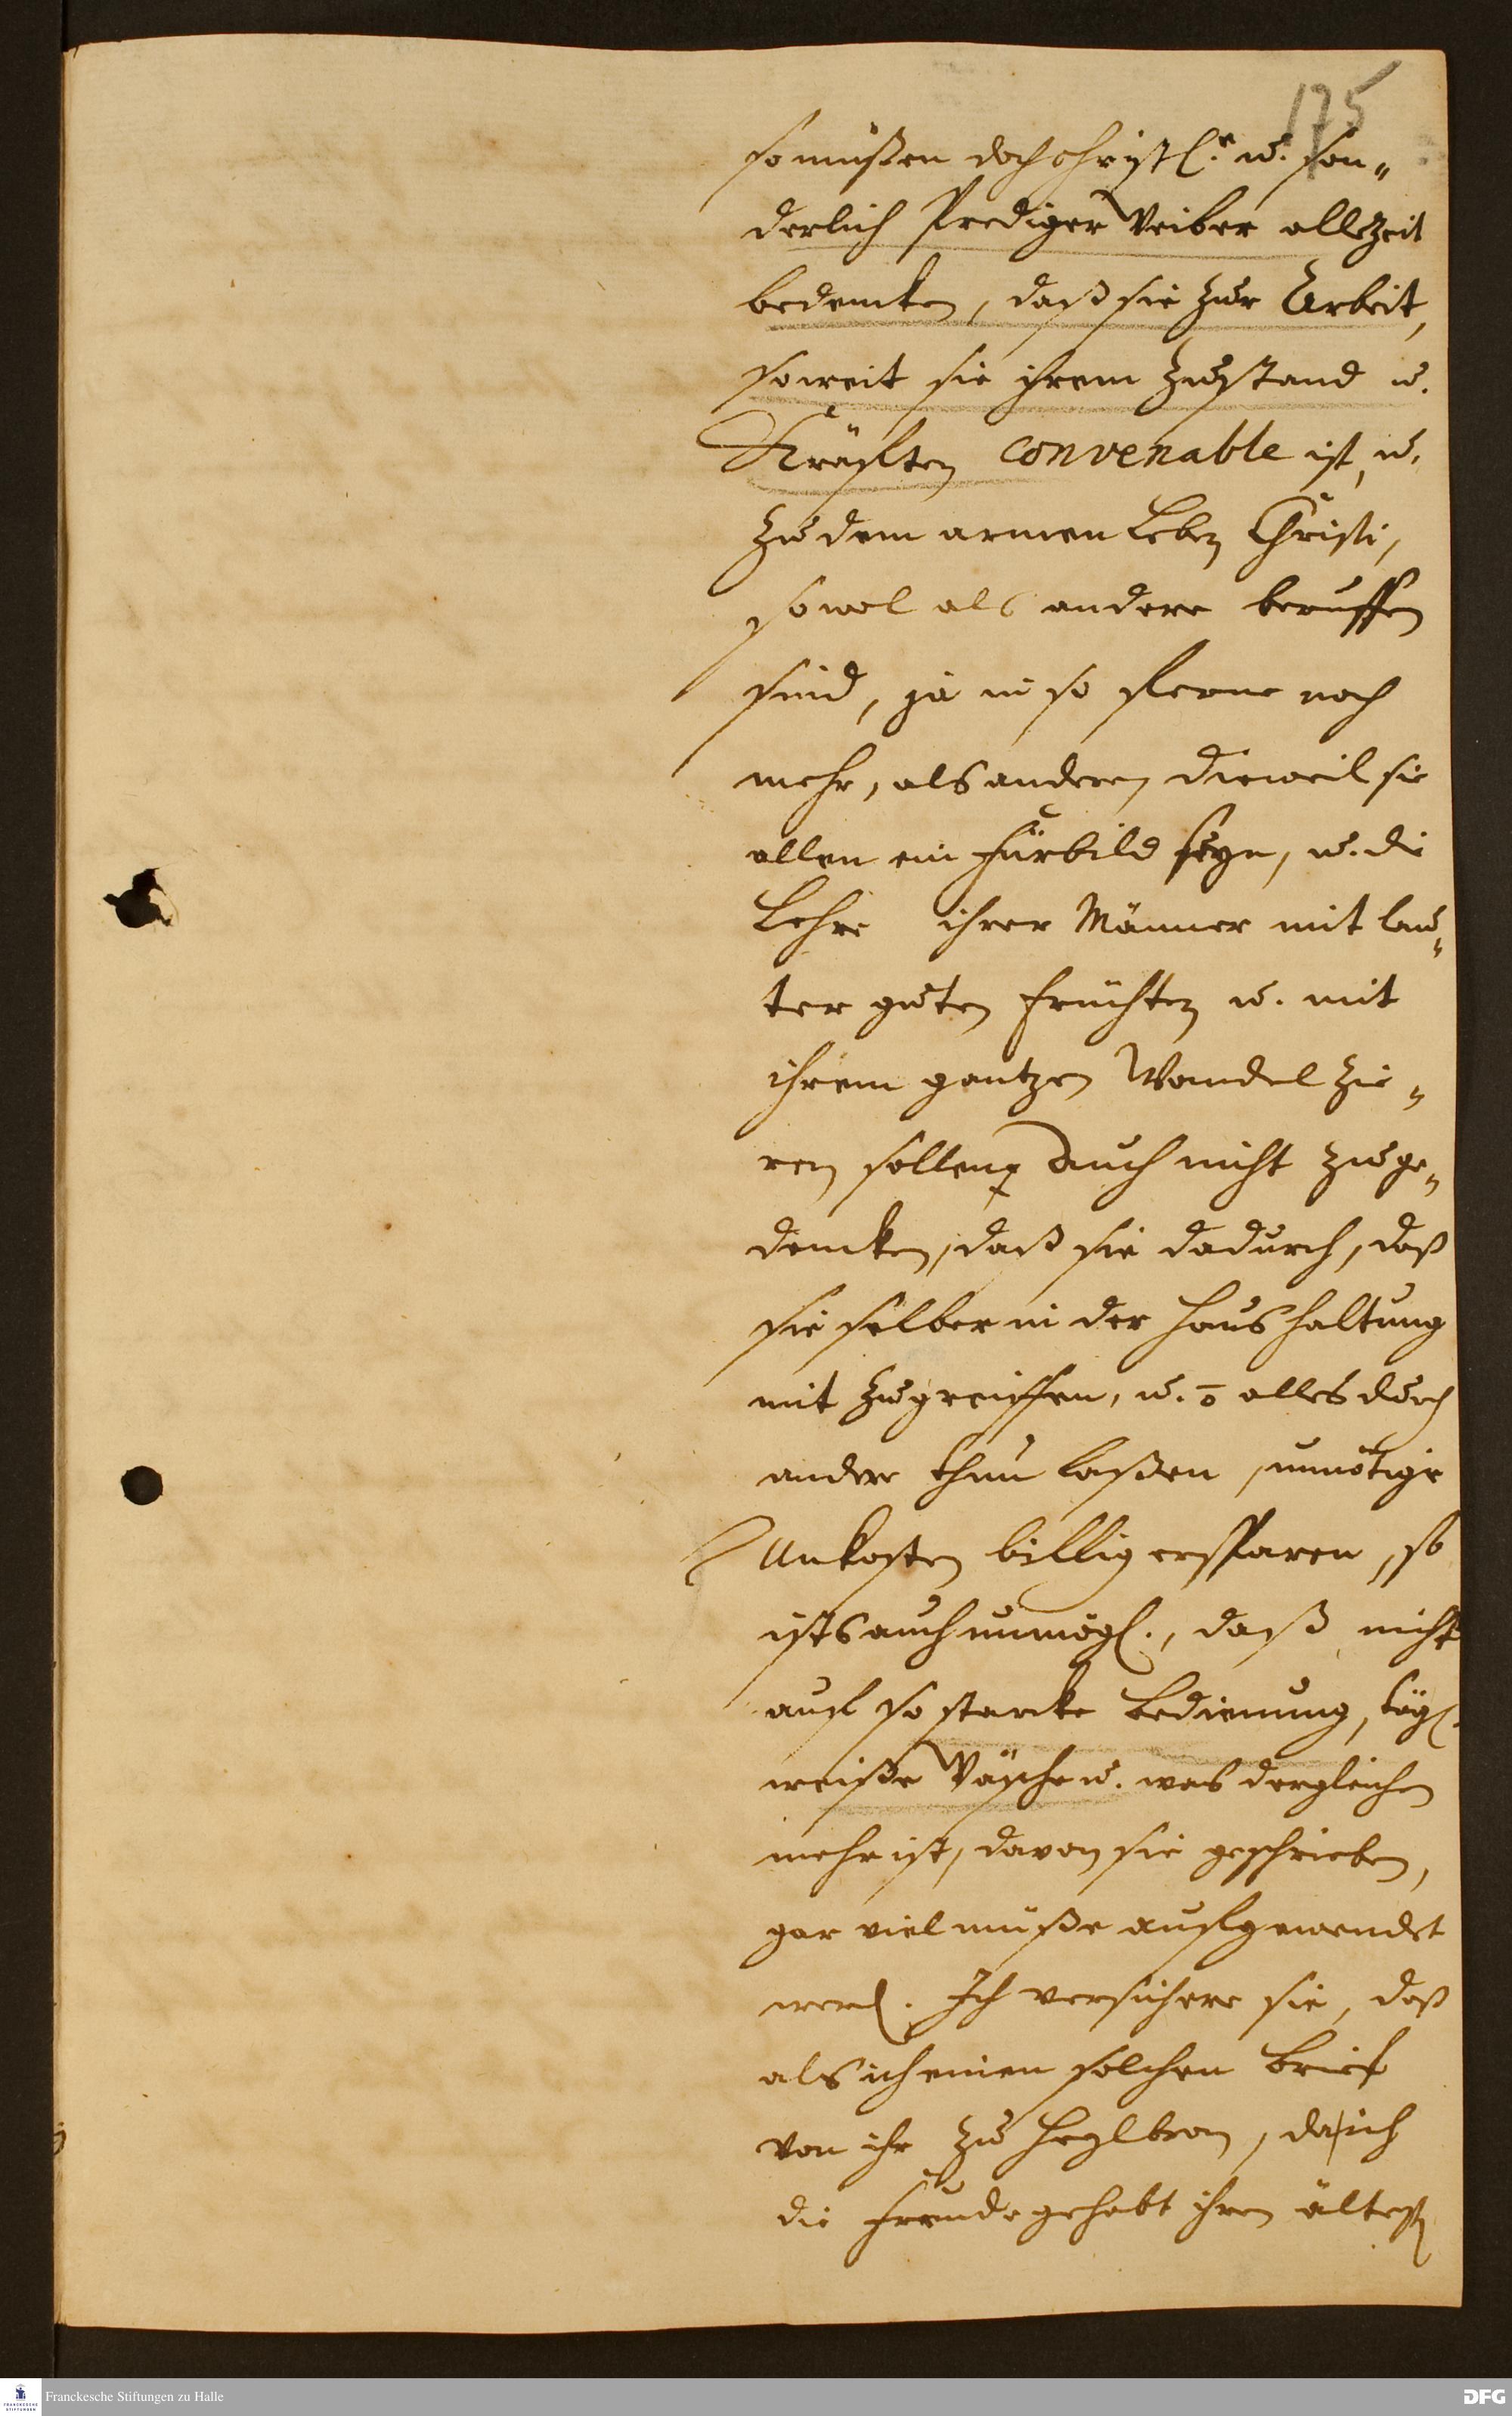 175
so müßen doch christl.e u. son„
derlich Prediger Weiber allezeit
bedencken, daß sie zur Arbeit,
soweit sie ihrem Zustand u.
Kräfften convenable ist, u.
zu dem armen Leben Christi,
sowol als andere beruffen
sind, ja in so ferne noch
mehr, als andere, dieweil sie
allen ein Fürbild seyn, u. die
Lehre ihrer Männer mit lau„
ter guten Früchten u. mit
ihrem gantzen Wandel zie„
ren sollen auch nicht zu ge„
dencken, daß sie dadurch, daß
sie selber in der Haushaltung
mit zugreiffen, u. o̅ alles durch
andere thun laßen, unnötige
Unkosten billig ersparen, so
ists auch unmögl., daß nicht
auf so starcke Bedienung, tägl.
weiße Wäsche u. was dergleichen
mehr ist, davon sie geschrieben,
gar viel müße aufgewendet
werd. Ich versichere sie, daß
als ich einen solchen Brief
von ihr zu Heylbron, da ich
die Freude gehabt ihren ältesten
Franckesche Stiftungen zu Halle
DFG